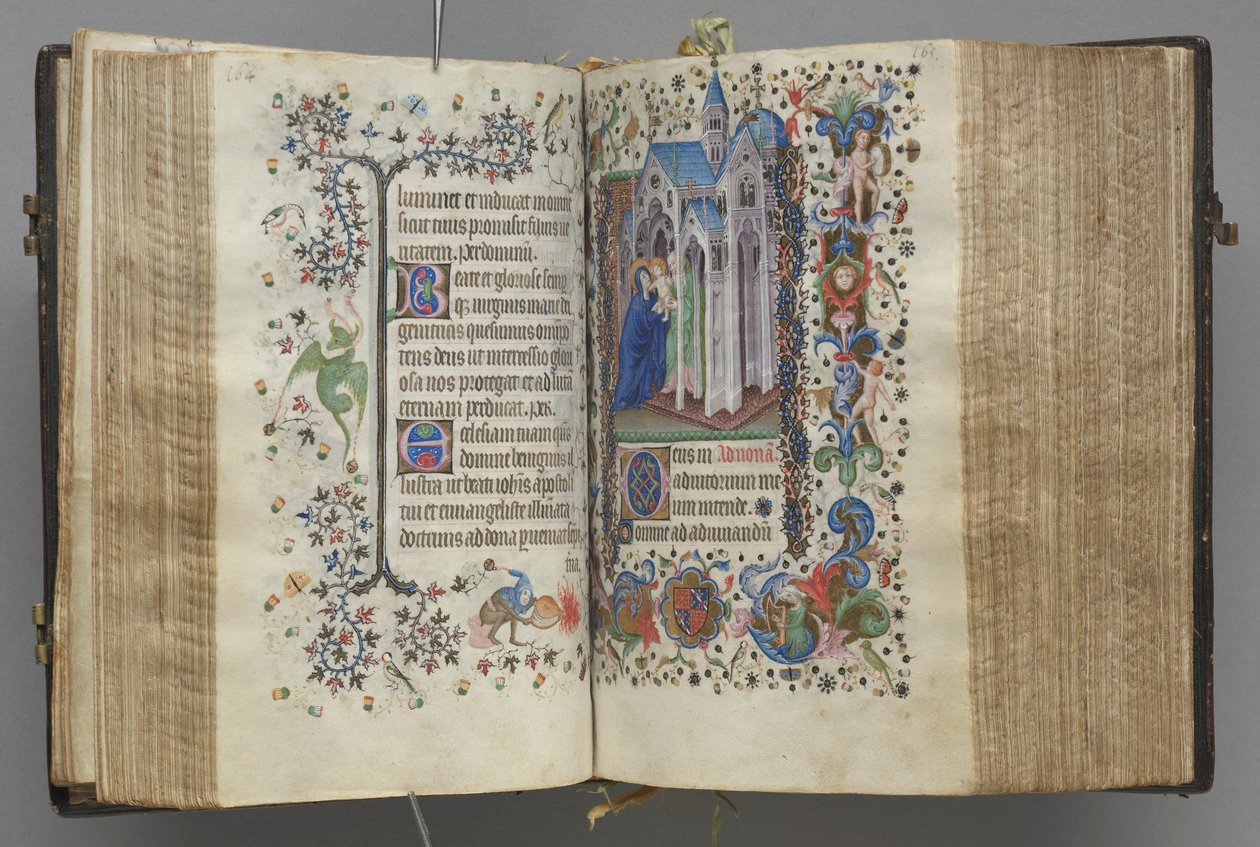 164
luminet et inducat in omnē
sicut tuus promisit filius ve
ritatem. per dominū.
Beate et gloriose semp
qꝫ virginis marie dei
genitricis quesumus omīpo
tens deus ut intercessio glori
osa nos protegat et ad vitā
eternam perducat. per.
Ecclesiam tuam q̄s
domine benignus il
lustra ut beati iohīs apostoli
tui et euuangeliste illumīata
doctrinis ad dona perueniat sepi
tna.
165
Deus in Ad nonā.
adiutorium me
um intende.
Domine ad adiuuandū